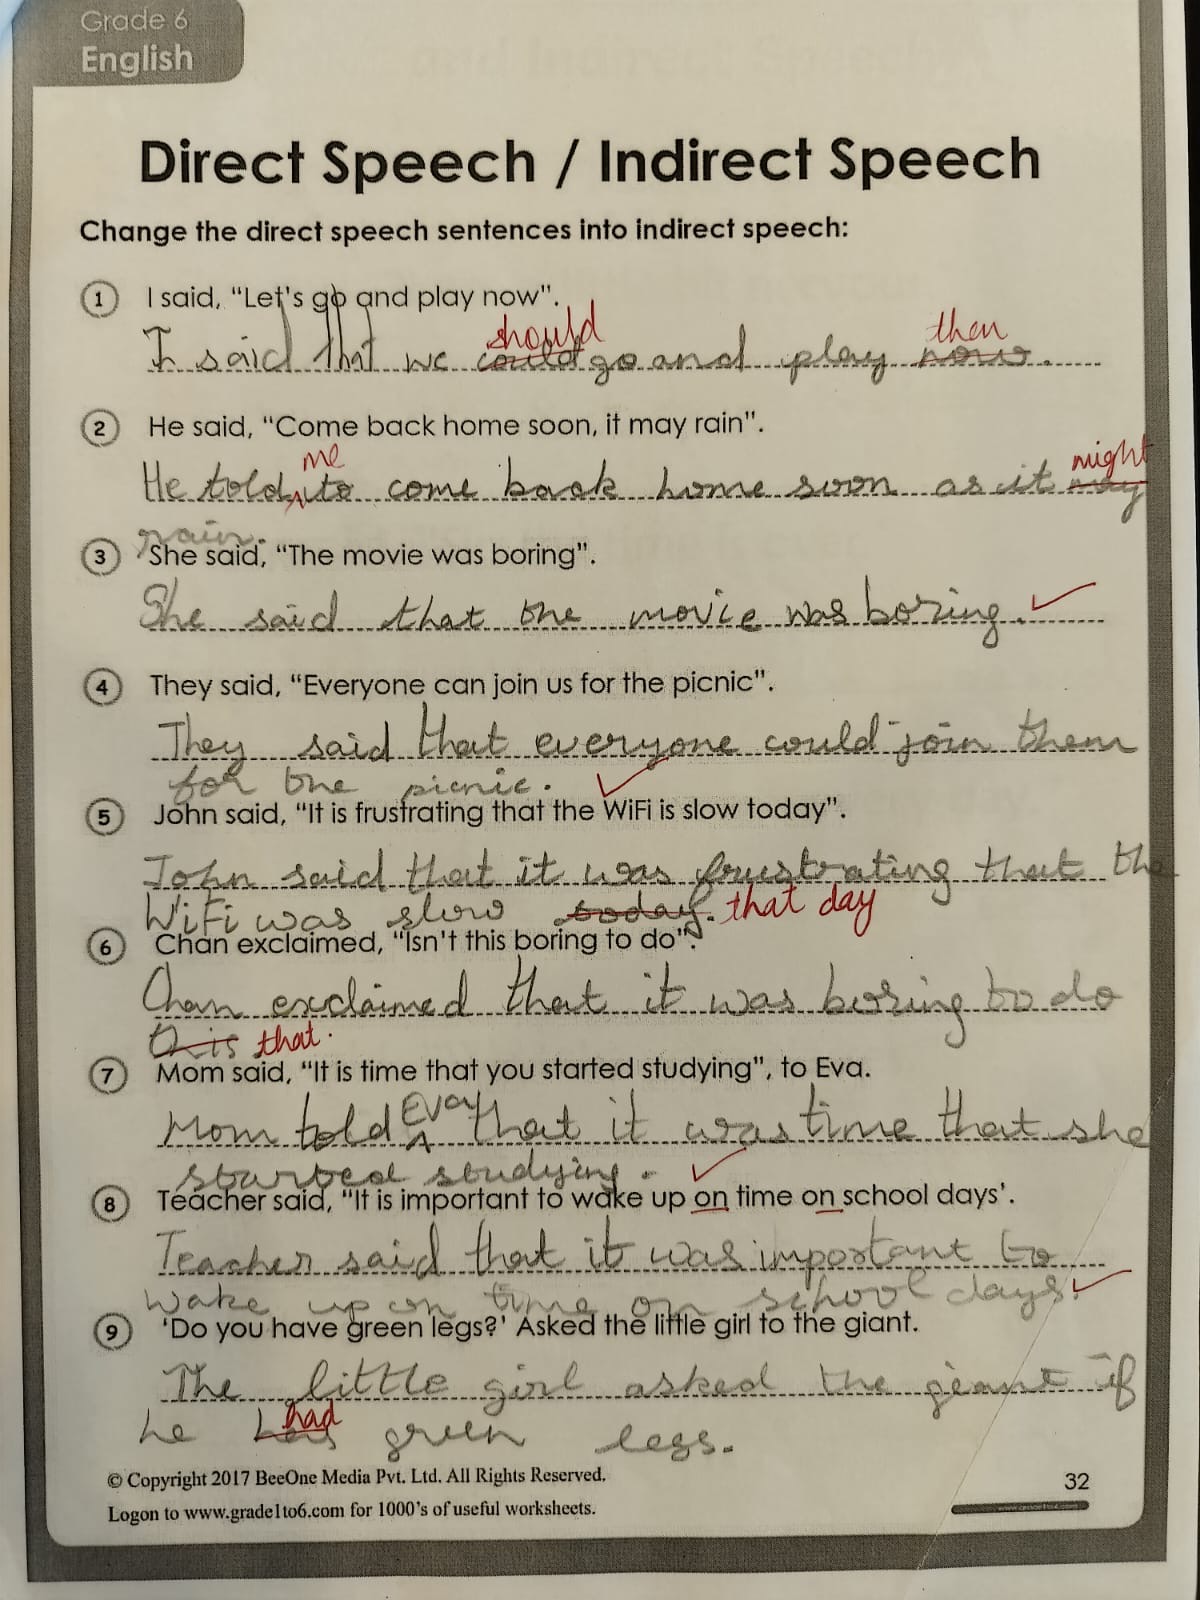 Grade 6
English
Direct Speech / Indirect Speech
Change the direct speech sentences into indirect speech:
1 I said, “Let's go and play now”.
should then
I said that we could go and play now.
2 He said, “Come back home soon, it may rain”.
me might
He told to come back home soon as it may
rain.
3 She said, “The movie was boring”.
She said that the movie was boring. ✓
4 They said, “Everyone can join us for the picnic”.
They said that everyone could join them
for the picnic. ✓
5 John said, “It is frustrating that the WiFi is slow today”.
John said that it was frustrating that the
WiFi was slow today. that day
6 Chan exclaimed, “Isn't this boring to do”.
Chan exclaimed that it was boring to do
this that.
7 Mom said, “It is time that you started studying”, to Eva.
Eva
Mom told that it was time that she
started studying. ✓
8 Teacher said, “It is important to wake up on time on school days'.
Teacher said that it was important to
wake up on time on school days. ✓
9 ‘Do you have green legs?’ Asked the little girl to the giant.
The little girl asked the giant if
had
he has green legs.
© Copyright 2017 BeeOne Media Pvt. Ltd. All Rights Reserved.
32
Logon to www.grade1to6.com for 1000’s of useful worksheets.